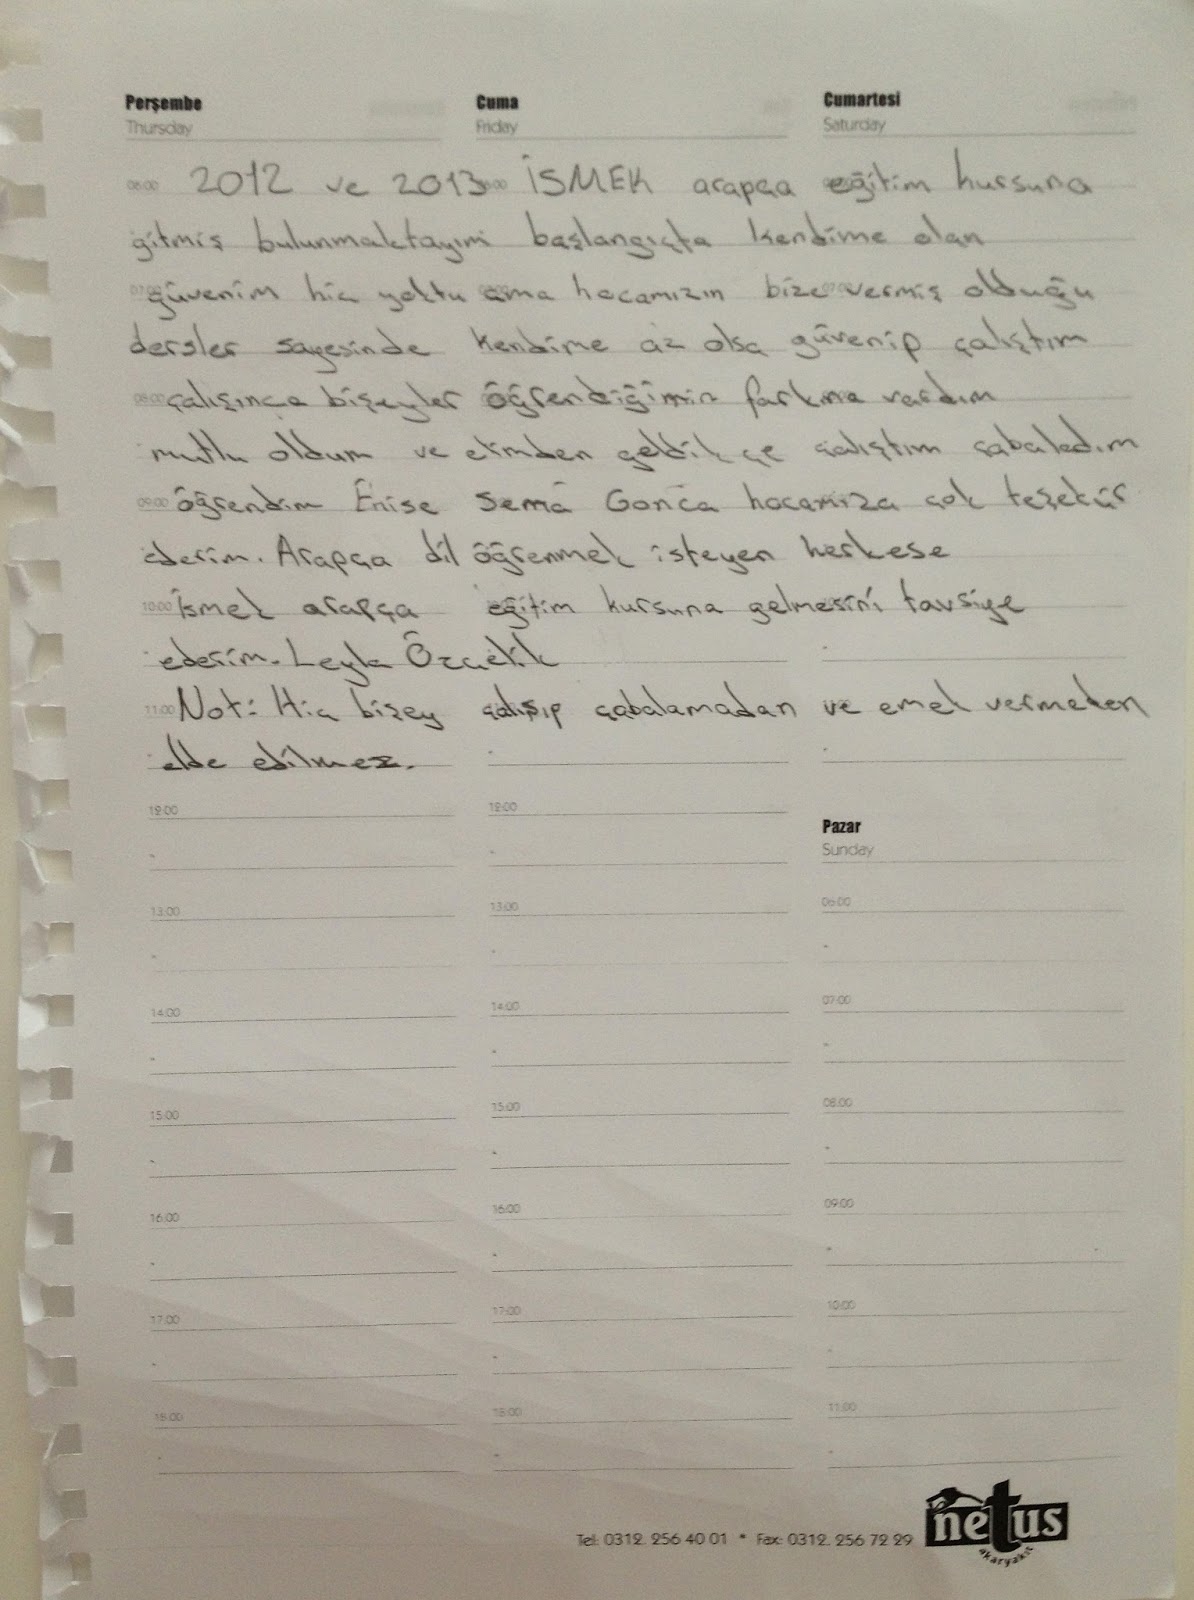 Perşembe Cuma Cumartesi
Thursday Friday Saturday
06:00 2012 ve 2013 İSMEK arapça eğitim kursuna
gitmiş bulunmaktayım başlangıçta kendime olan
07:00 güvenim hiç yoktu ama hocamızın bize vermiş olduğu
dersler sayesinde kendime az olsa güvenip çalıştım
08:00 çalışınca bişeyler öğrendiğimin farkına vardım
mutlu oldum ve elimden geldikçe çalıştım çabaladım
09:00 öğrendim Enise Sema Gonca hocamıza çok teşekür
ederim. Arapça dil öğrenmek isteyen herkese
10:00 İsmek arapça eğitim kursuna gelmesini tavsiye
ederim. Leyla Özçelik
11:00 Not: Hiç bişey çalışıp çabalamadan ve emek vermeden
elde edilmez.
12:00 12:00
Pazar
Sunday
13:00 13:00 06:00
14:00 14:00 07:00
15:00 15:00 08:00
16:00 16:00 09:00
17:00 17:00 10:00
18:00 18:00 11:00
Tel: 0312. 256 40 01 * Fax: 0312. 256 72 29 netus
akaryakıt